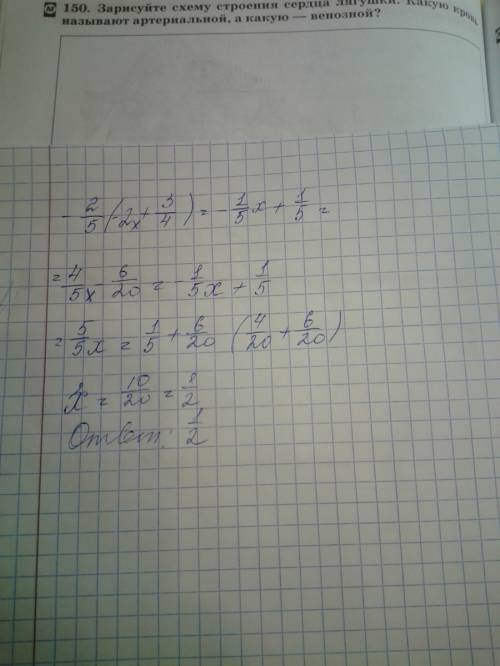 150. Зарисуйте схему строения сердца лягушки. Какую кровь
называют артериальной, а какую — венозной?
- 2/5 (-2x + 3/4) = - 1/5 x + 1/5 =
= 4/5x - 6/20 = - 1/5x + 1/5
= 5/5x = 1/5 + 6/20 (4/20 + 6/20)
x = 10/20 = 1/2
Ответ: 1/2